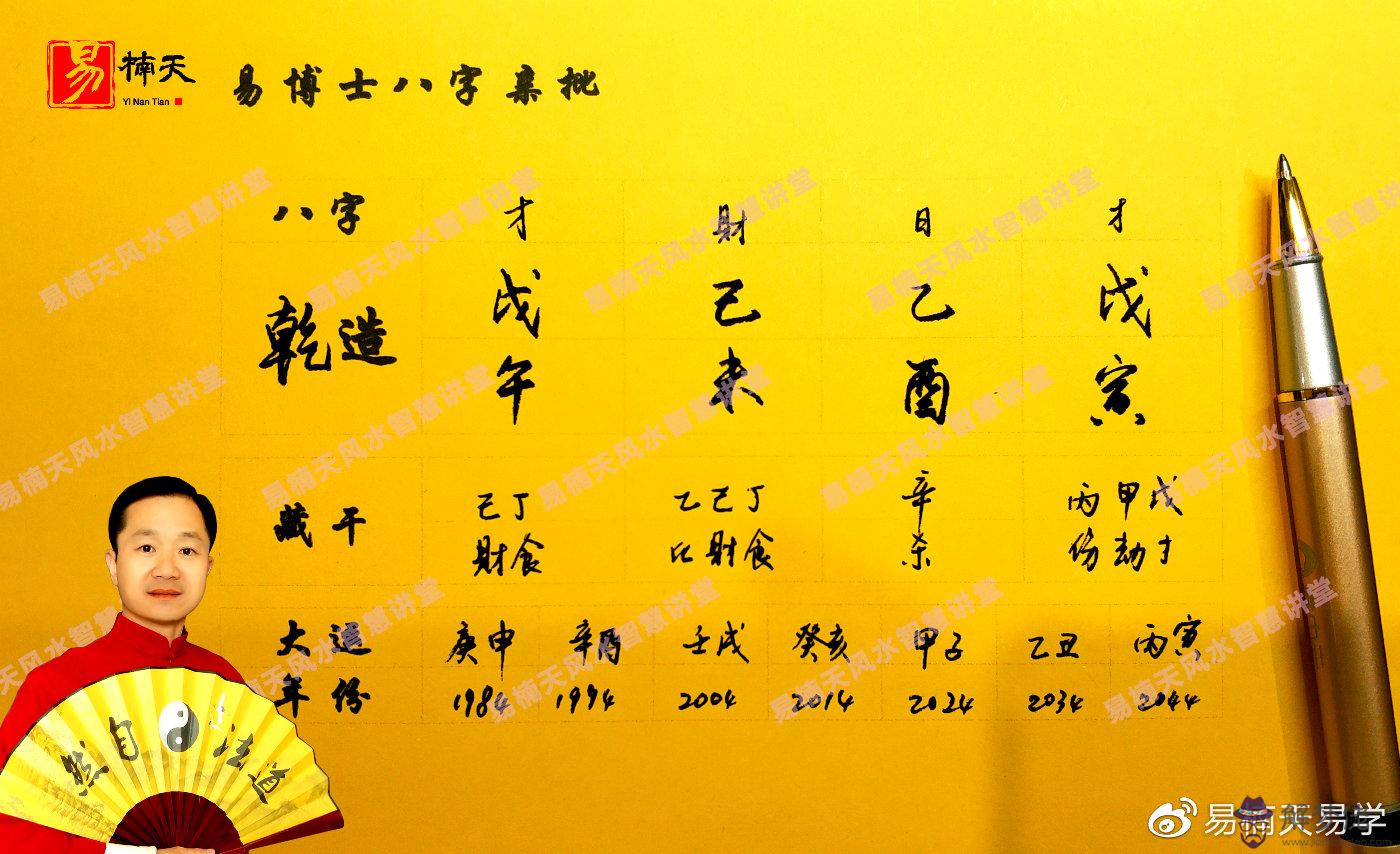 易 楠天 易博士八字亲批
Yi Nan Tian
八字 才 財 日 才
乾造 戊 己 乙 戊
午 未 酉 寅
藏干 己丁 乙己丁 辛 丙甲戊
財食 比財食 杀 伤劫才
大运 庚申 辛酉 壬戌 癸亥 甲子 乙丑 丙寅
年份 1984 1994 2004 2014 2024 2034 2044
道法自然
易楠天风水智慧讲堂
易楠天易学